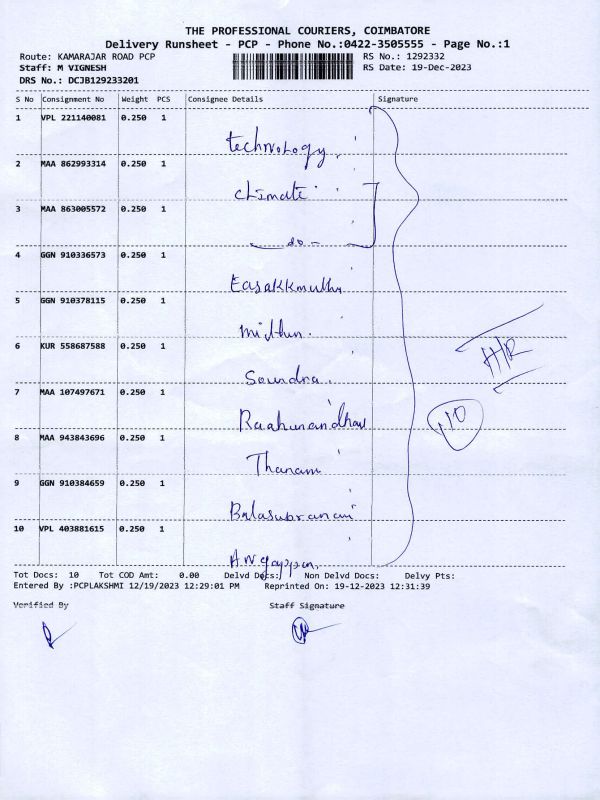 THE PROFESSIONAL COURIERS, COIMBATORE
Delivery Runsheet - PCP - Phone No.:0422-3505555 - Page No.:1
Route: KAMARAJAR ROAD PCP RS No.: 1292332
Staff: M VIGNESH RS Date: 19-Dec-2023
DRS No.: DCJB129233201
S No Consignment No Weight PCS Consignee Details Signature
1 VPL 221140081 0.250 1
technology
2 MAA 862993314 0.250 1
climate
3 MAA 863005572 0.250 1
- do -
4 GGN 910336573 0.250 1
Easakkmuthu
5 GGN 910378115 0.250 1
midhun.
6 KUR 558687588 0.250 1
Soundra.
7 MAA 107497671 0.250 1
8 MAA 943843696 0.250 1
Thanam
9 GGN 910384659 0.250 1
10 VPL 403881615 0.250 1
Angappan.
Tot Docs: 10 Tot COD Amt: 0.00 Delvd Docs: Non Delvd Docs: Delvy Pts:
Entered By :PCPLAKSHMI 12/19/2023 12:29:01 PM Reprinted On: 19-12-2023 12:31:39
Verified By Staff Signature